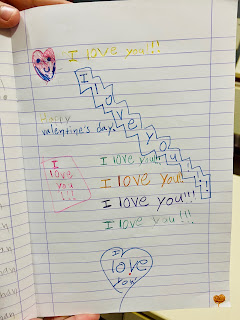 I love you!!!
I love you!!
Happy
valentine's day
I love you!!!
I
love
you
!!!
I love you!
I love you!!!
I love you!!!
I
love
you